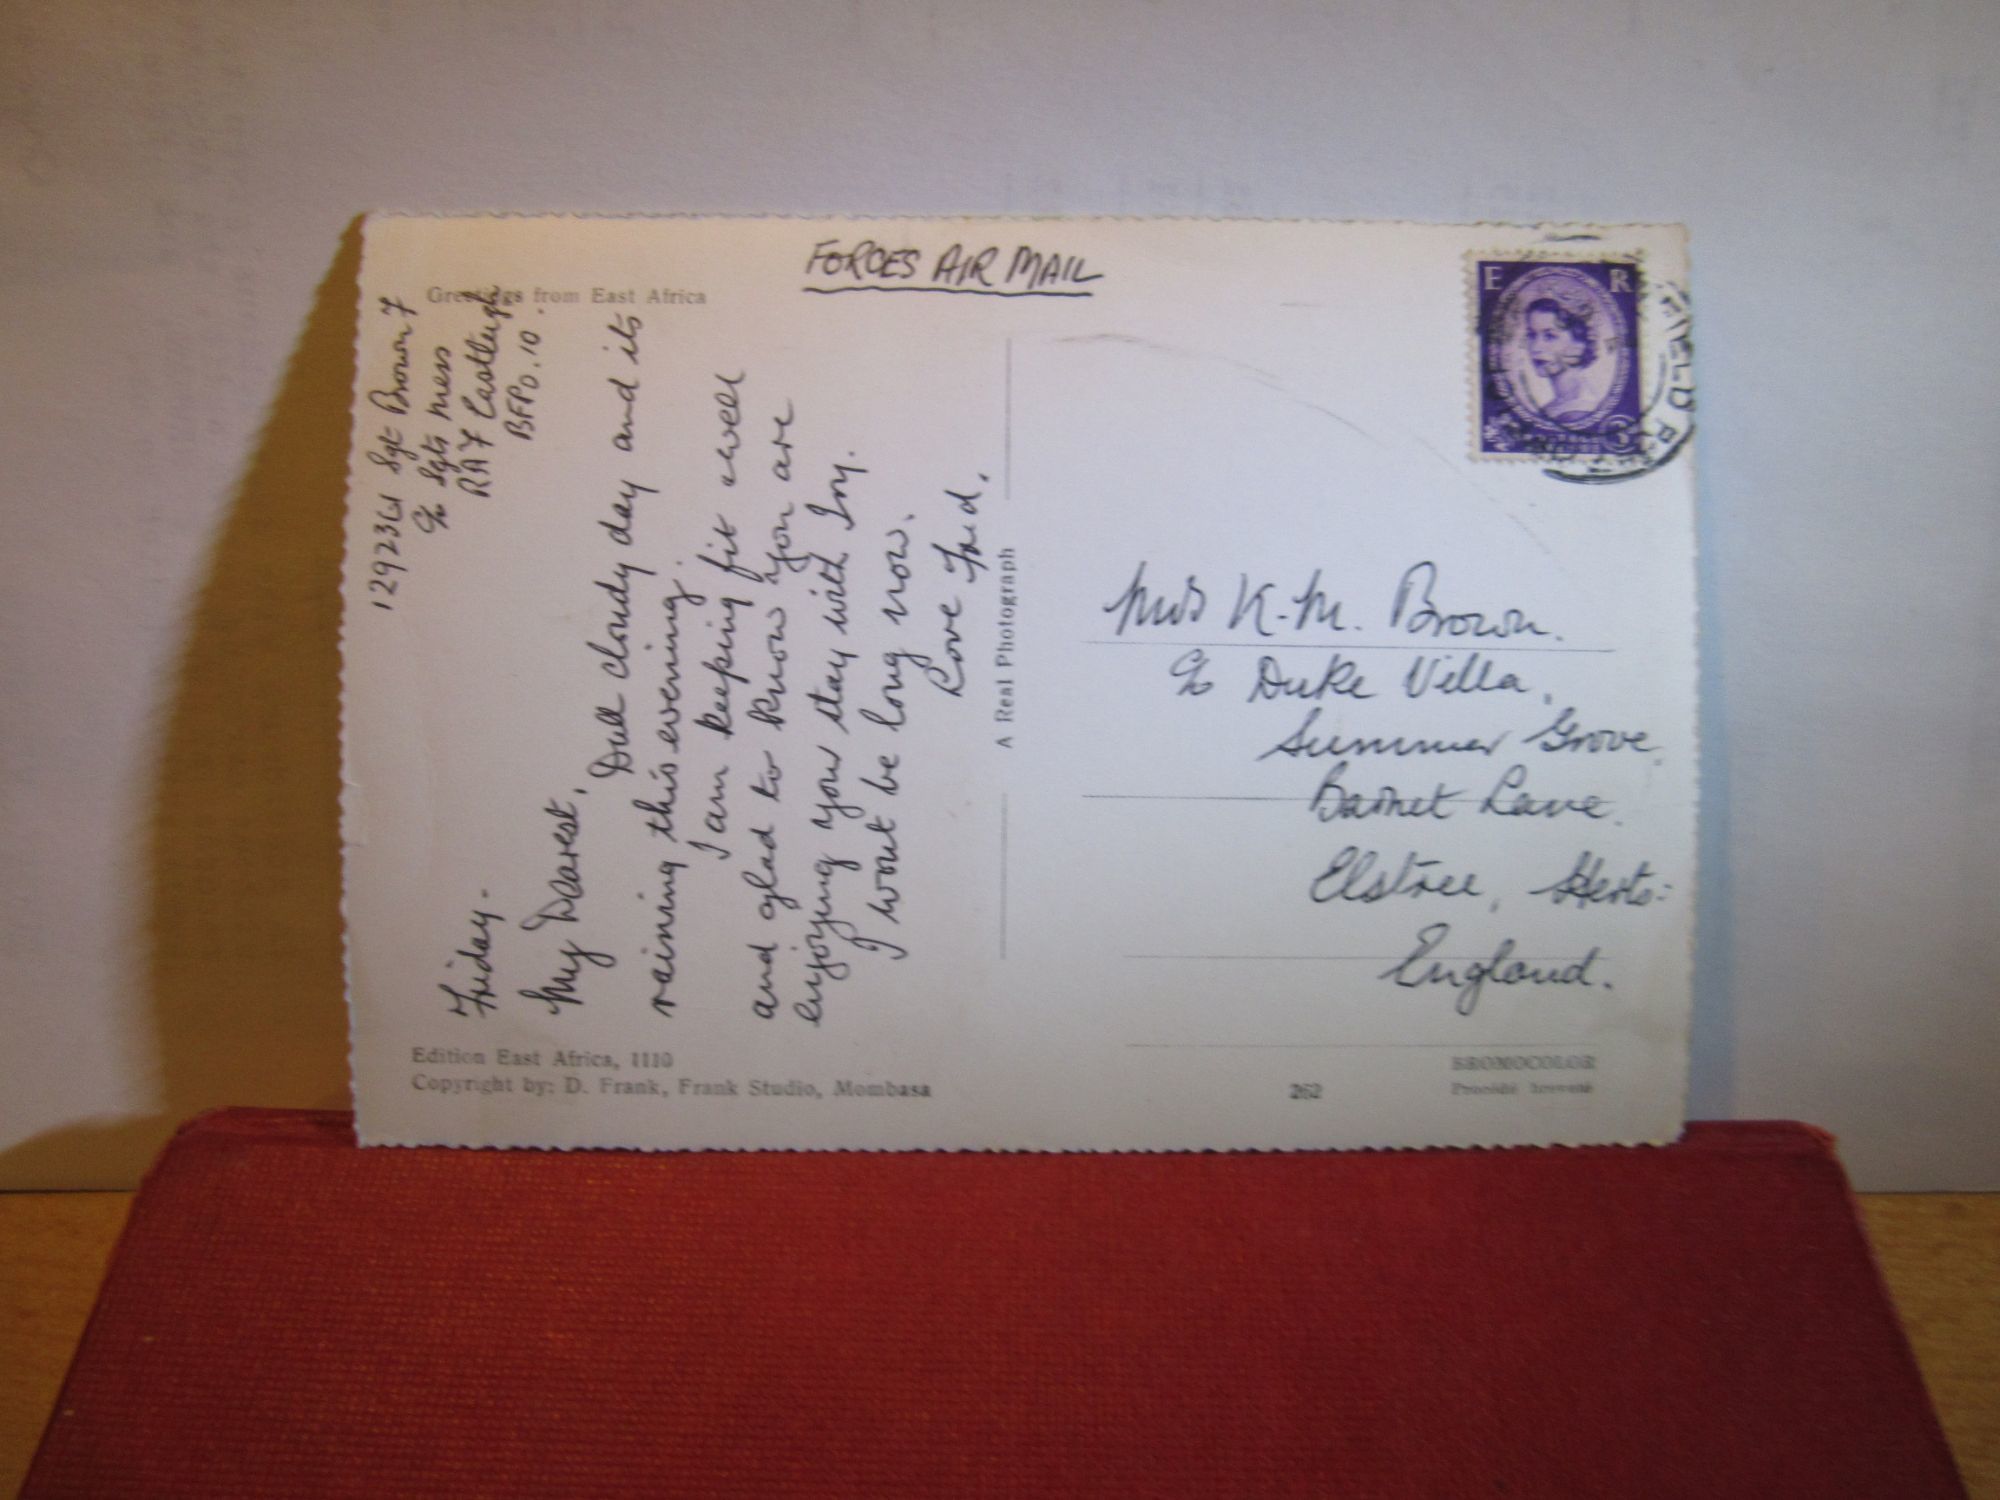 FORCES AIR MAIL
Greetings from East Africa
Sgt Brown F
c/o Sgts Mess
RAF Eastleigh
BFPO. 10.
Friday.
My Dearest,
Dull cloudy day and its
raining this evening.
I am keeping fit & well
and glad to know you are
enjoying your stay with Ivy.
I wont be long now.
Love Fred.
A Real Photograph
E R
3
FIELD P
Mrs K. M. Brown.
c/o Duke Villa,
Summer Grove,
Barnet Lane.
Elstree, Herts:
England.
Edition East Africa, 1110
Copyright by: D. Frank, Frank Studio, Mombasa
262
BROMOCOLOR
Procédé breveté